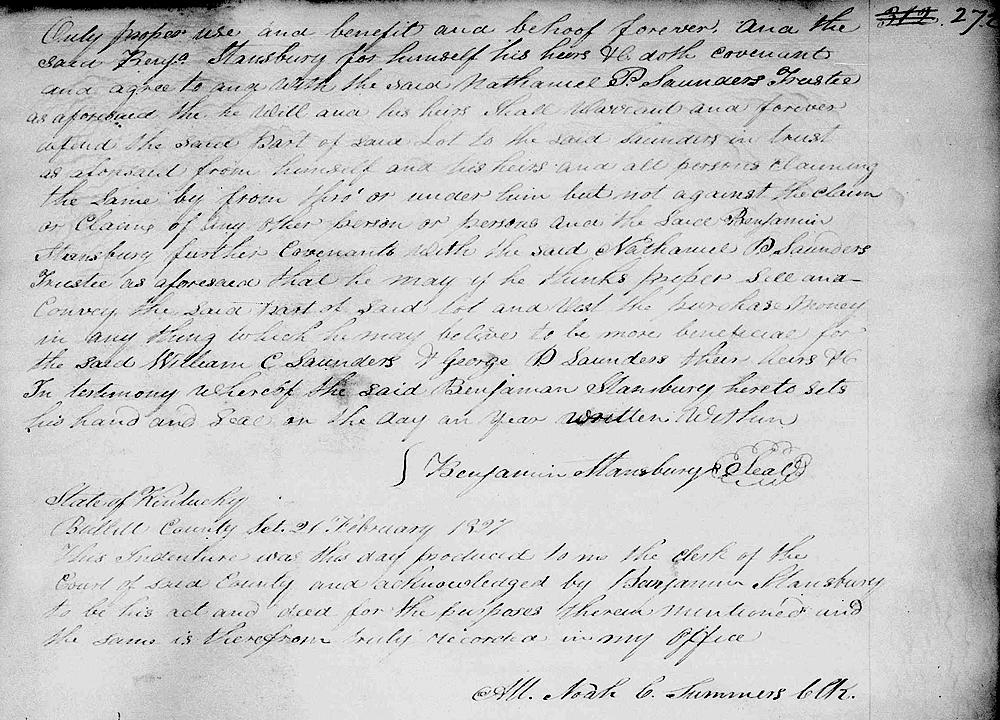 312. 272
Only proper use and benefit and behoof forever, And the
said Benja Stansbury for himself his heirs &c doth covenant
and agree to and with the said Nathaniel P. Saunders Trustee
as aforesaid the he Will and his heirs Shall Warrant and forever
defend the said Part of said Lot to the said Saunders in trust
as aforsaid from himself and his heirs and all persons claiming
the Same by from thro' or under him but not against the claim
or Claims of any other person or persons and the Said Benjamin
Stansbury further Covenants with the said Nathaniel P Saunders
Trustee as aforesaid that he may if he thinks proper Sell and
Convey the Said Part of Said lot and Vest the purchase Money
in any thing which he may believe to be more beneficial for
the said William C Saunders & George P Saunders their heirs &c
In testimony whereof the said Benjaman Stansbury hereto sets
his hand and Seal on the day an Year written Within
Benjamin Stansbury Seal
State of Kentucky
Bullitt County Sct. 21 February 1827
This Indenture was this day produced to me the clerk of the
Court of said County and acknowledged by Benjamin Stansbury
to be his act and deed for the purposes therein mentioned and
the same is therefrom truly recorded in my office
Att. Noah C. Summers Clk.